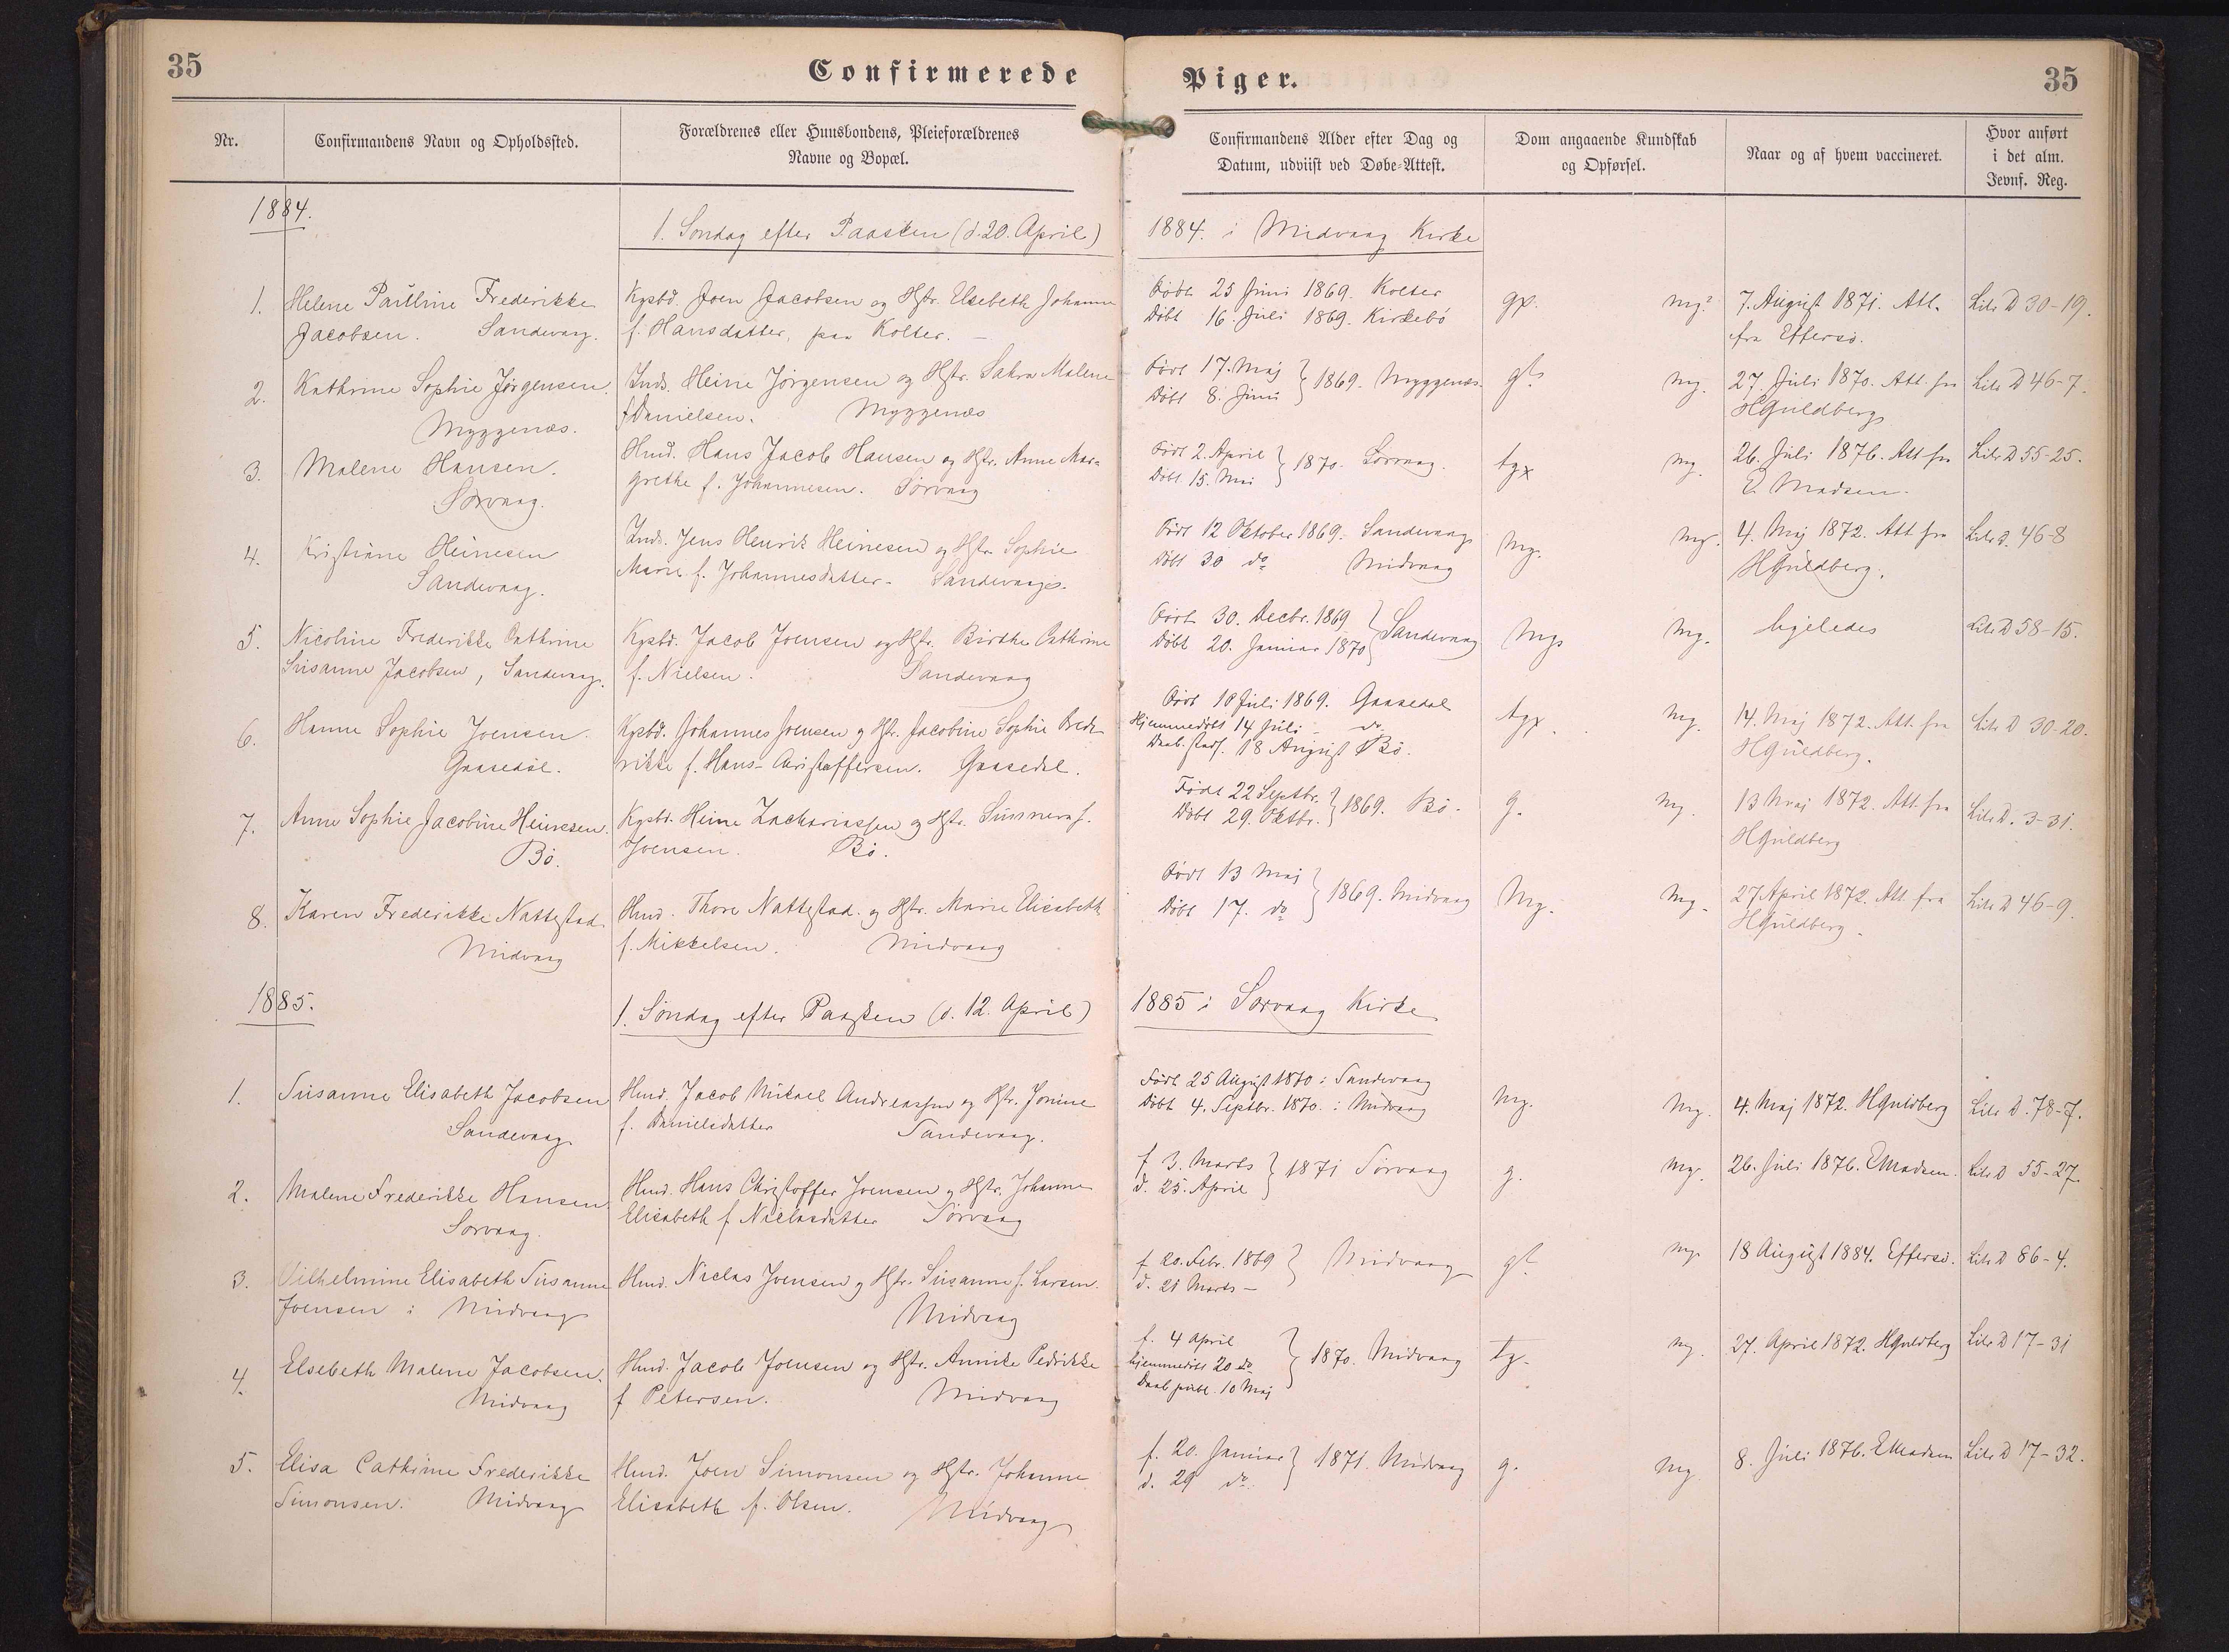 35
Confirmerede Piger.
35
Nr.
Confirmandens Navn og Opholdssted.
Forældrenes eller Huusbondens, Pleieforældrenes
Navne og Bopæl.
Confirmandens Alder efter Dag og
Datum, udviist ved Døbe-Attest.
Dom angaaende Kundskab
og Opførsel.
Naar og af hvem vaccineret.
Hvor anført
i det alm.
Jevnf. Reg.
1884.
1. Søndag efter Paasken (d. 20. April) 1884. i Midvaag Kirke
1. Helene Pauline Frederikke
Jacobsen. Sandevaag.
Kgsbd. Joen Jacobsen og Hstr. Elsebeth Johanne
f. Hansdatter, paa Kolter. –
Født 25 Juni 1869. Kolter
Døbt 16. Juli 1869. Kirkebø
gx. mg?
7. August 1871. Att.
fra Effersø.
Litr D 30-19.
2. Kathrine Sophie Jørgensen.
Myggenæs.
Inds. Heine Jørgensen og Hstr. Sahra Malene
f Danielsen. Myggenæs
Født 17. Maj
Døbt 8. Juni } 1869. Myggenæs.
mg.
27. Juli 1870. Att. fra
HGuldberg
Litr D 46-7.
3. Malene Hansen.
Sørvaag.
Hmd. Hans Jacob Hansen og Hstr. Anne Mar=
grethe f. Johannesen. Sørvaag
Født 2. April
Døbt 15. Mai } 1870. Sørvaag.
tgx mg.
26. Juli 1876. Att fra
E. Madsen.
Litr D 55-25.
4. Kristiane Heinesen
Sandevaag.
Inds. Jens Henrik Heinesen og Hstr. Sophie
Marie f. Johannesdatter. Sandevaag.
Født 12 Oktober 1869. Sandevaag
Døbt 30 do Midvaag
Mg. mg.
4. Maj 1872. Att fra
HGuldberg.
Litr D. 46-8
5. Nicoline Frederikke Cathrine
Susanne Jacobsen, Sandevaag.
Kgsbd. Jacob Joensen og Hstr. Birthe Cathrine
f. Nielsen. Sandevaag
Født 30. Decbr. 1869
Døbt 20. Januar 1870 } Sandevaag
Mg. mg.
ligeledes
Litr D 58-15.
6. Hanne Sophie Joensen.
Gaasedal.
Kgsbd. Johannes Joensen og Hstr. Jacobine Sophie Frede
rikke f. Hans-Christoffersen. Gaasedal.
Født 10 Juli 1869. Gaasedal
Hjemmedøbt 14 Juli – do
Daab. stadf. 18 August Bø.
tgx. mg.
14. Maj 1872. Att. fra
HGuldberg.
Litr D 30-20.
7. Anne Sophie Jacobine Heinesen.
Bø.
Kgsbd. Heine Zachariassen og Hstr. Sunneva f.
Joensen. Bø.
Født 22 Septbr.
Døbt 29. Oktbr. } 1869. Bø.
g. mg.
13 Maj 1872. Att. fra
HGuldberg
Litr D. 3-31.
8. Karen Frederikke Nattestad
Midvaag
Hmd. Thore Nattestad. og Hstr. Marie Elisabeth
f. Mikkelsen. Midvaag
Født 13 Maj
Døbt 17. do } 1869. Midvaag
Mg. mg.
27 April 1872. Att. fra
HGuldberg.
Litr D 46-9.
1885.
1. Søndag efter Paasken (d. 12. April) 1885 i Sørvaag Kirke
1. Susanne Elisabeth Jacobsen
Sandevaag.
Hmd. Jacob Mikael Andreassen og Hstr. Jonine
f. Danielsdatter Sandevaag.
Født 25 August 1870 i Sandevaag
Døbt 4. Septbr. 1870. i Midvaag
Mg. mg.
4. Maj 1872. HGuldberg
Litr D. 78-7.
2. Malene Frederikke Hansen.
Sørvaag.
Hmd. Hans Christoffer Joensen og Hstr. Johanne
Elisabeth f Niclasdatter Sørvaag
f 3. Marts
d. 25. April } 1871 Sørvaag
g. mg.
26. Juli 1876. EMadsen.
Litr D 55-27.
3. Vilhelmine Elisabeth Susanne
Joensen i Midvaag
Hmd. Niclas Joensen og Hstr. Susanne f. Larsen.
Midvaag
f 20. Febr. 1869
d. 21 Marts – } Midvaag
mg.
18 August 1884. Effersø.
Litr D 86-4.
4. Elsebeth Malene Jacobsen.
Midvaag
Hmd. Jacob Joensen og Hstr. Annike Pedrikke
f Petersen. Midvaag
f. 4 April
Hjemmedøbt 20 do
Daab publ. 10 Maj } 1870. Midvaag
tg. mg.
27. April 1872. HGuldberg
Litr D 17-31
5. Elisa Cathrine Frederikke
Simonsen. Midvaag
Hmd. Joen Simonsen og Hstr. Johanne
Elisabeth f. Olsen. Midvaag
f. 20. Januar
d. 29 do. } 1871. Midvaag
g. mg.
8. Juli 1876. EMadsen
Litr D 17-32.